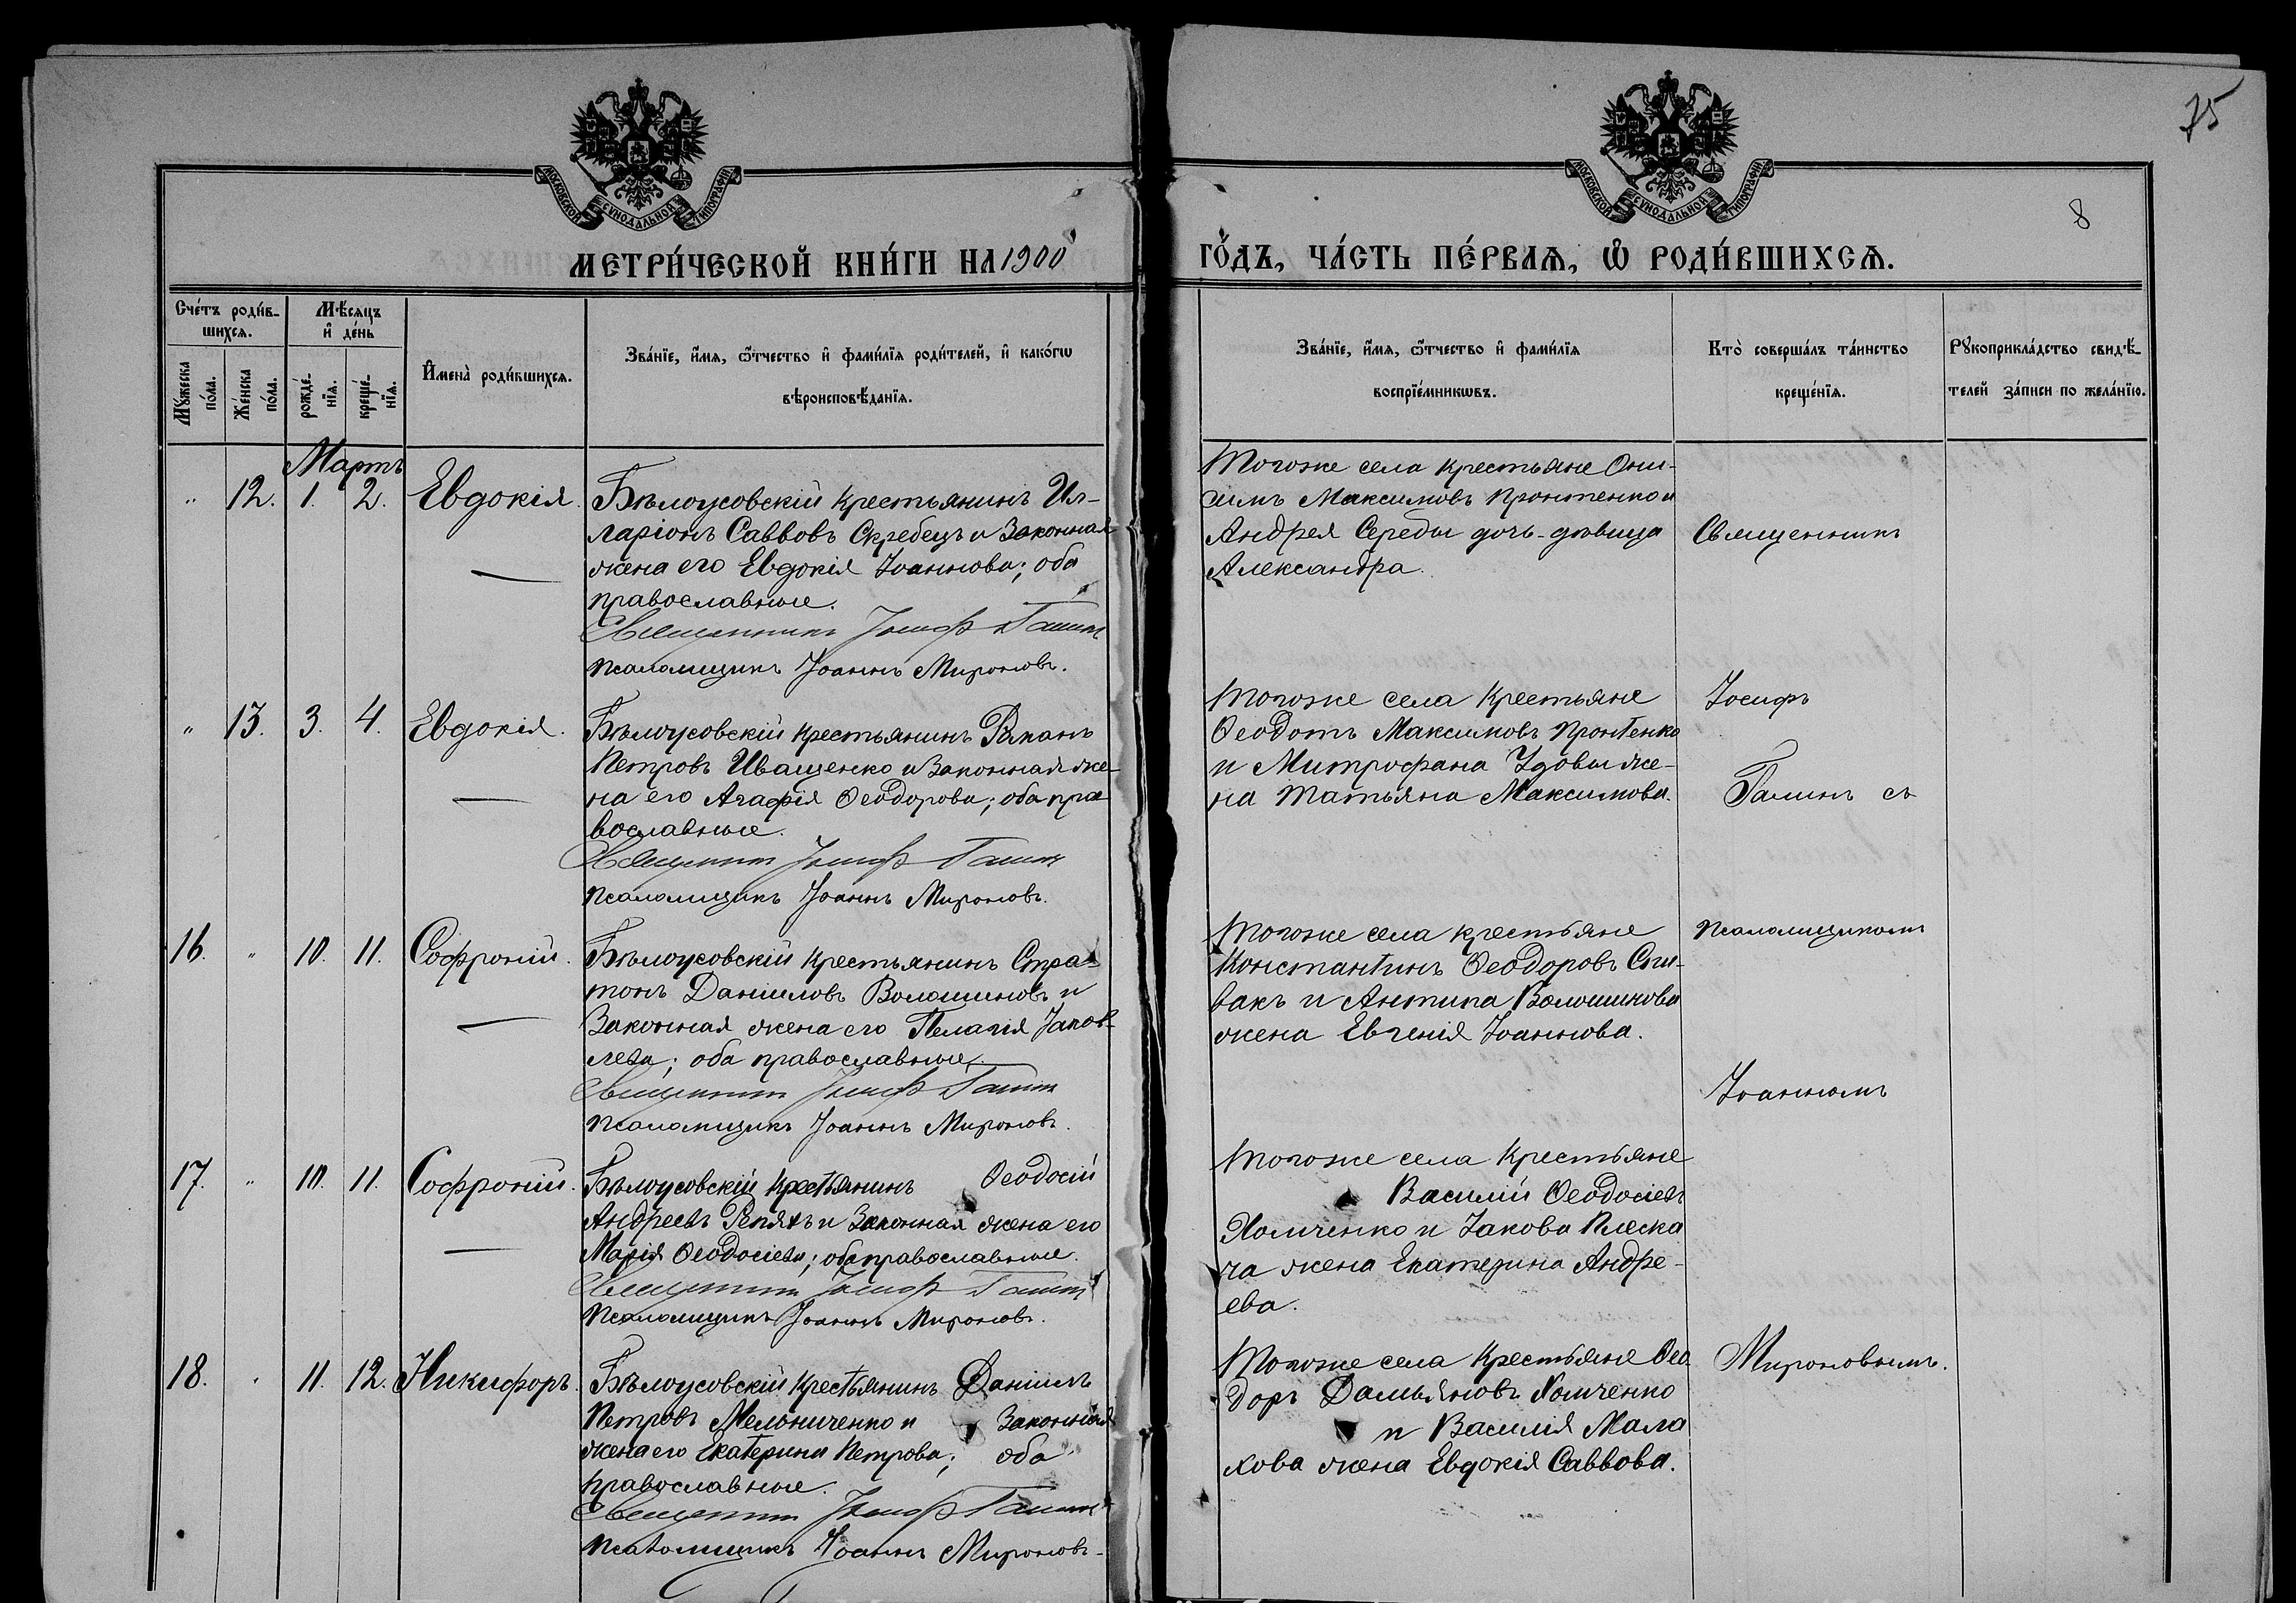 75
МОСКОВСКОЙ СѴНОДАЛЬНОЙ ТИПОГРАФІИ
МОСКОВСКОЙ СѴНОДАЛЬНОЙ ТИПОГРАФІИ
8
МЕТРИ́ЧЕСКОЙ КНИ́ГИ НА 1900
ГО́ДЪ, ЧА́СТЬ ПЕ́РВАѦ, Ѡ҆ РОДИ́ВШИХСѦ.
Сче́тъ роди́в-
шихсѧ.
Мѣ́сѧцъ
и҆ де́нь
Мꙋ́жеска
по́ла.
Же́нска
по́ла.
рожде́-
нїѧ.
креще́-
нїѧ.
И҆мена̀ роди́вшихсѧ.
Зва́нїе, и҆́мѧ, ѻ҆́тчество и҆ фами́лїѧ роди́телей, и҆ како́гѡ
вѣроисповѣ́данїѧ.
Зва́нїе, и҆́мѧ, ѻ҆́тчество и҆ фами́лїѧ
воспрїе́мникѡвъ.
Кто̀ соверша́лъ та́инство
креще́нїѧ.
Рꙋкоприкла́дство свидѣ́-
телей за́писи по жела́нїю.
Мартъ
" 12. 1. 2. Евдокія.
Бѣлоусовскій крестьянинъ Ил-
ларіонъ Саввовъ Скребецъ и законная
жена его Евдокія Іоаннова; оба
православные.
Священникъ Іосифъ Галинъ
Псаломщикъ Іоаннъ Мироновъ.
Тогоже села крестьяне Они-
симъ Максимовъ Пронтенко и
Андрея Середы дочь-дѣвица
Александра.
Священникъ
" 13. 3. 4. Евдокія.
Бѣлоусовскій крестьянинъ Романъ
Петровъ Иващенко и законная же-
на его Агафія Ѳеодорова; оба пра
вославные.
Священникъ Іосифъ Галинъ
Псаломщикъ Іоаннъ Мироновъ.
Тогоже села крестьяне
Ѳеодотъ Максимовъ Пронтенко
и Митрофана Удовы же-
на Татьяна Максимова.
Іосифъ
Галинъ съ
16. " 10. 11. Софроній.
Бѣлоусовскій крестьянинъ Стра-
тонъ Даниловъ Волошиновъ и
законная жена его Пелагія Іаков-
лева; оба православные.
Священникъ Іосифъ Галинъ
Псаломщикъ Іоаннъ Мироновъ.
Тогоже села крестьяне
Константинъ Ѳеодоровъ Спи-
вакъ и Антипа Волошинова
жена Евгенія Іоаннова.
Псаломщикомъ
Іоанномъ
17. " 10. 11. Софроній.
Бѣлоусовскій крестьянинъ Ѳеодосій
Андреевъ Репяхъ и законная жена его
Марія Ѳеодосіева; оба православные.
Священникъ Іосифъ Галинъ
Псаломщикъ Іоаннъ Мироновъ.
Тогоже села крестьяне
Василій Ѳеодосіевъ
Хомченко и Іакова Плеска
ча жена Екатерина Андре-
ева.
18. " 11. 12. Никифоръ.
Бѣлоусовскій крестьянинъ Даніилъ
Петровъ Мельниченко и законная
жена его Екатерина Петрова; оба
православные.
Священникъ Іосифъ Галинъ
Псаломщикъ Іоаннъ Мироновъ.
Тогоже села крестьяне Ѳео
доръ Дамьяновъ Хомченко
и Василія Мала
хова жена Евдокія Саввова.
Мироновымъ.